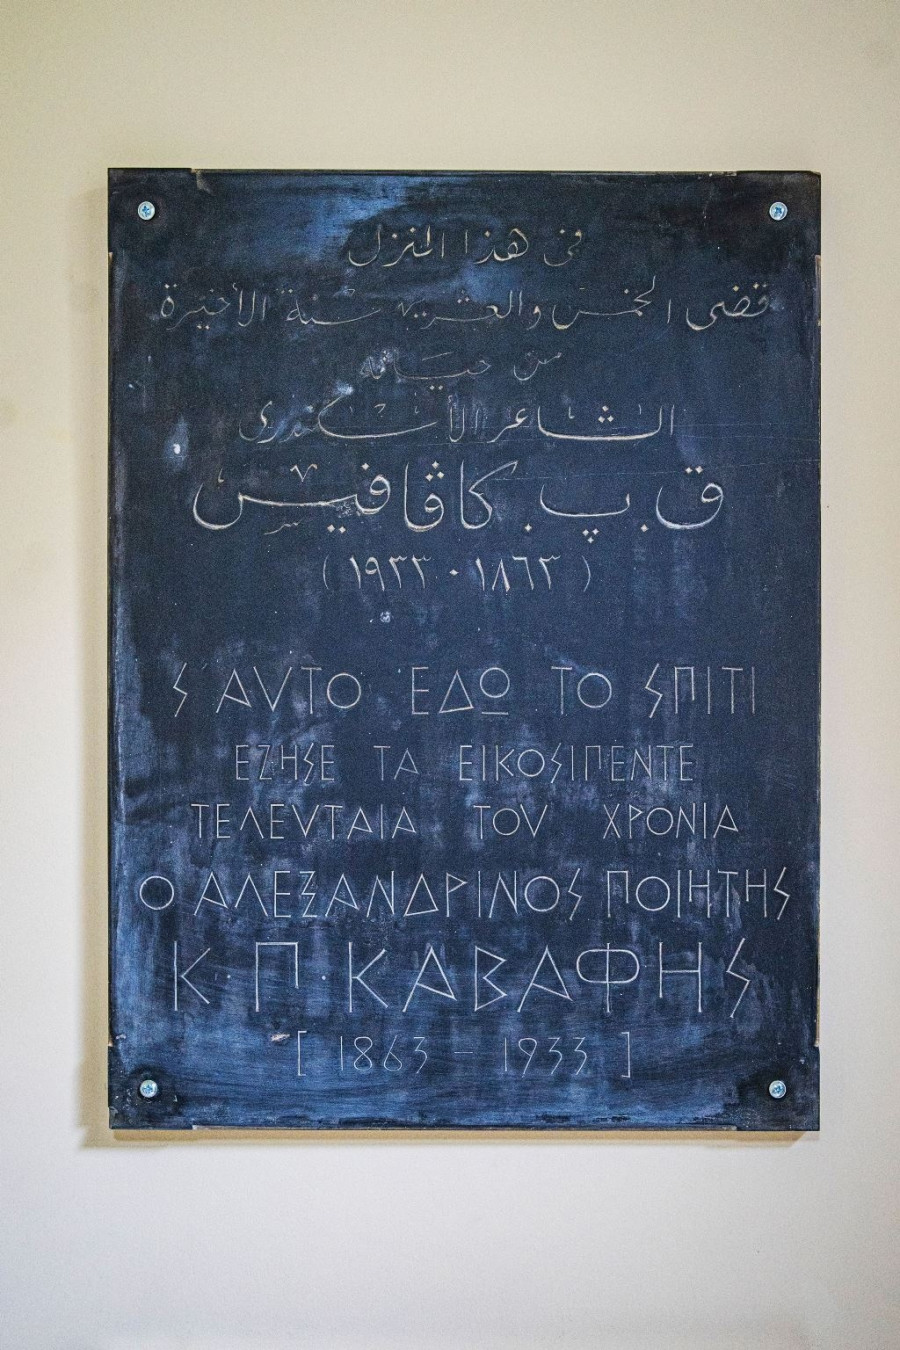 فى هذا المنزل
قضى الخمس والعشرين سنة الأخيرة
من حياته
الشاعر الأسكندرى
ق. پ. كاڤافيس
(١٨٦٣ - ١٩٣٣)
Σ' ΑΥΤΟ ΕΔΩ ΤΟ ΣΠΙΤΙ
ΕΖΗΣΕ ΤΑ ΕΙΚΟΣΙΠΕΝΤΕ
ΤΕΛΕΥΤΑΙΑ ΤΟΥ ΧΡΟΝΙΑ
Ο ΑΛΕΞΑΝΔΡΙΝΟΣ ΠΟΙΗΤΗΣ
Κ·Π·ΚΑΒΑΦΗΣ
[1863 - 1933]